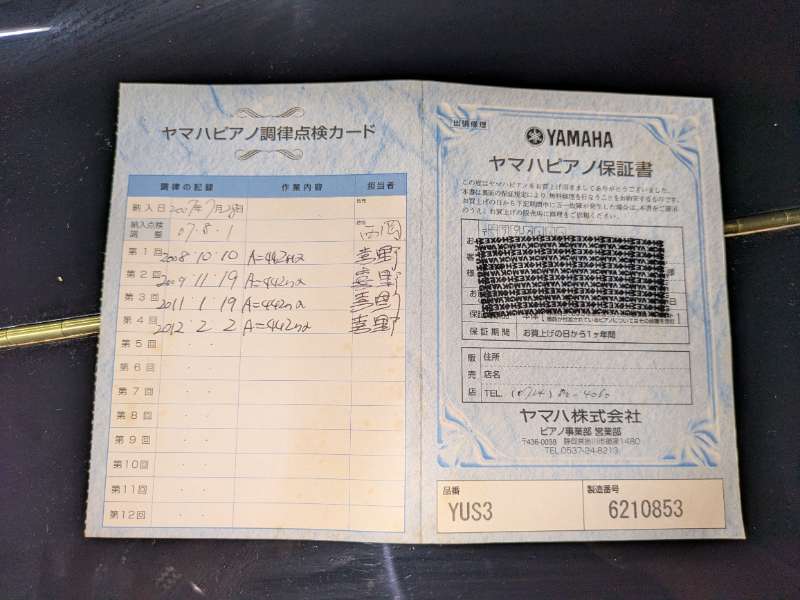 ヤマハピアノ調律点検カード
調律の記録 作業内容 担当者
納入日 2007年7月
納入点検調整 07.8.1
第1回 2008 10 10 A=442Hz 喜野
第2回 2009 11 19 A=442Hz 喜野
第3回 2011 1 19 A=442Hz 喜野
第4回 2012 2 2 A=442Hz 喜野
第5回
第6回
第7回
第8回
第9回
第10回
第11回
第12回
出張修理
YAMAHA
ヤマハピアノ保証書
この度はヤマハピアノをお買上げ頂きましてありがとうございました。
本書は裏面の保証規定により、無料修理を行なうことをお約束するものです。
お買上げの日から下記期間中に万一故障が発生した場合は、本書をご提示
のうえ、お買上げの販売店に修理をご依頼ください。
保証期間 お買上げの日から1ヶ年間
販売店
住所
店名
TEL.
ヤマハ株式会社
ピアノ事業部 営業部
TEL.0537-24-8213
品番 YUS3
製造番号 6210853